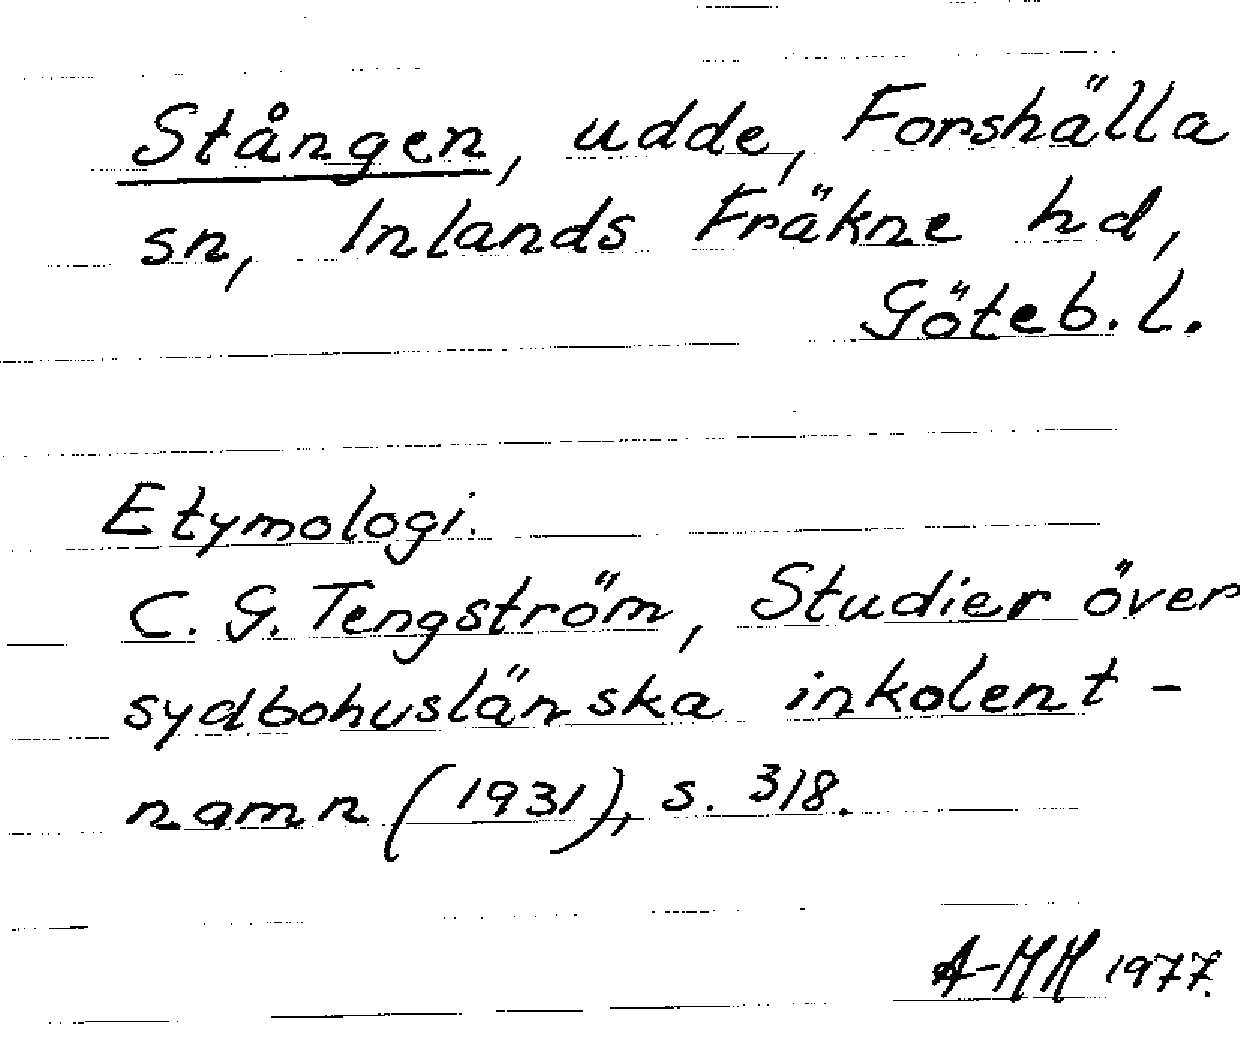 Stången, udde, Forshälla
sn, Inlands Fräkne hd,
Göteb. l.
Etymologi.
C. G. Tengström, Studier över
sydbohuslänska inkolent-
namn (1931), s. 318.
A-MH 1977.